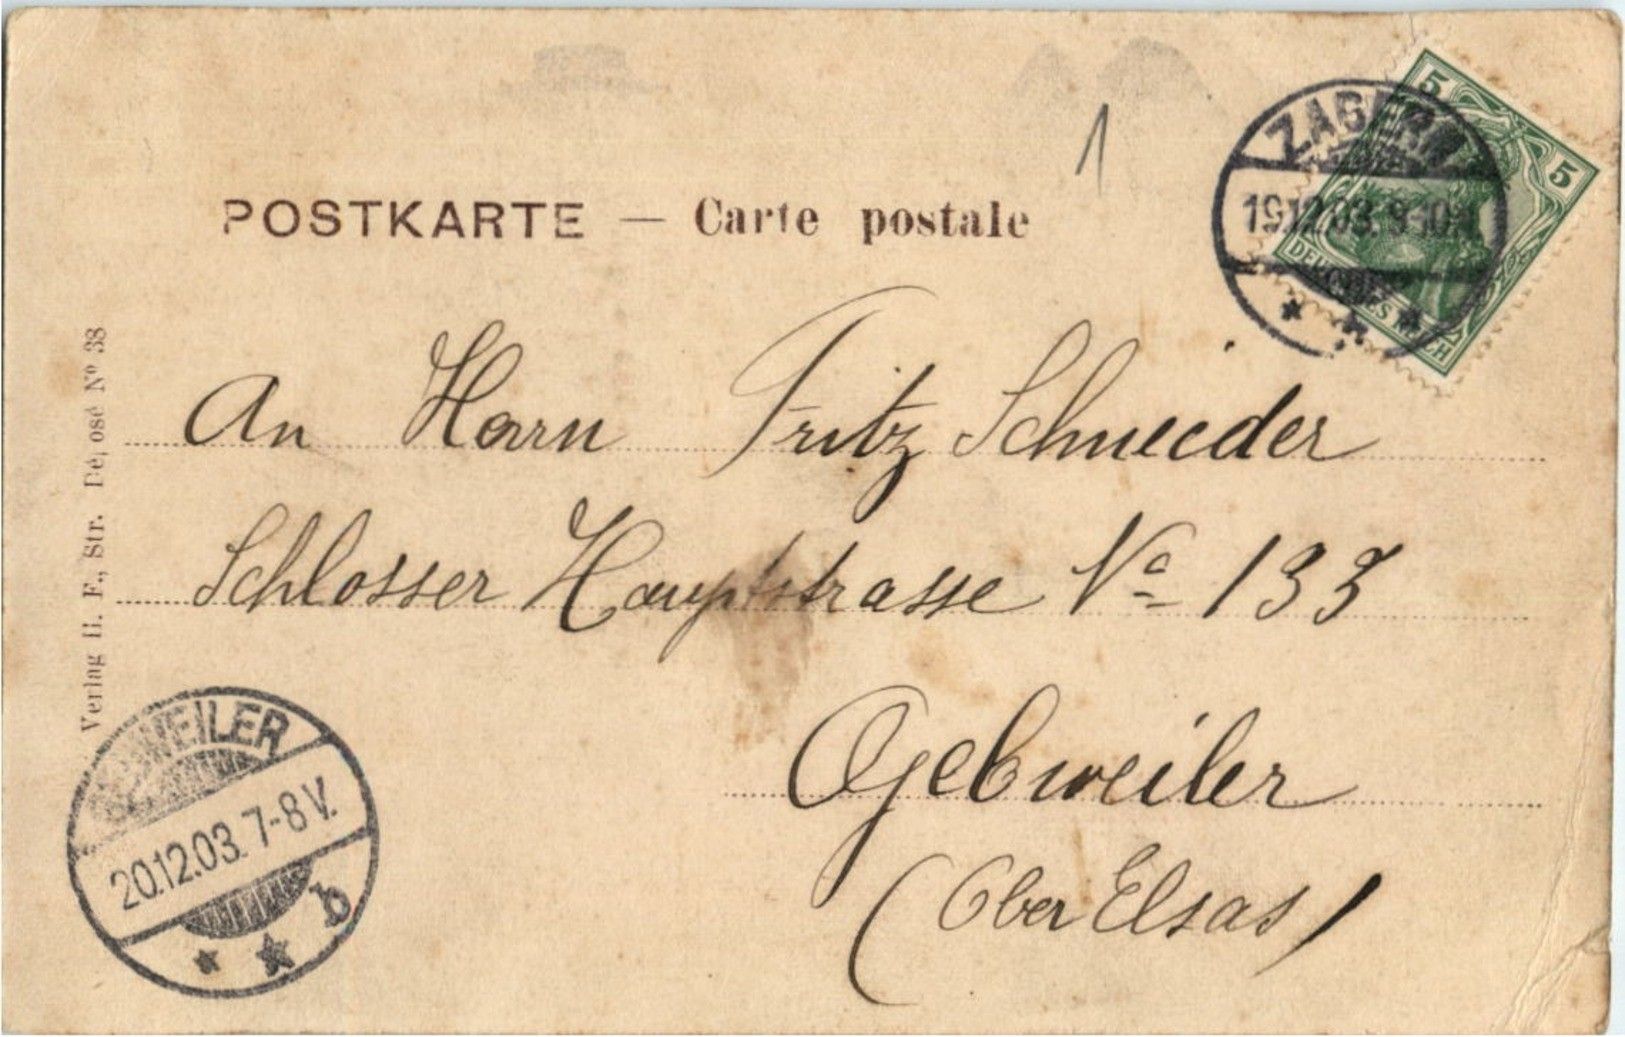 1
ZABERN
19.12.03.
5
5
DEUTSCHES REICH
POSTKARTE — Carte postale
An Herrn Fritz Schneider
Schlosser Hauptstrasse No 133
Gebweiler
(Ober Elsas)
Verlag H. F., Str. Deposé No 38
GEBWEILER
20.12.03. 7-8 V.
b